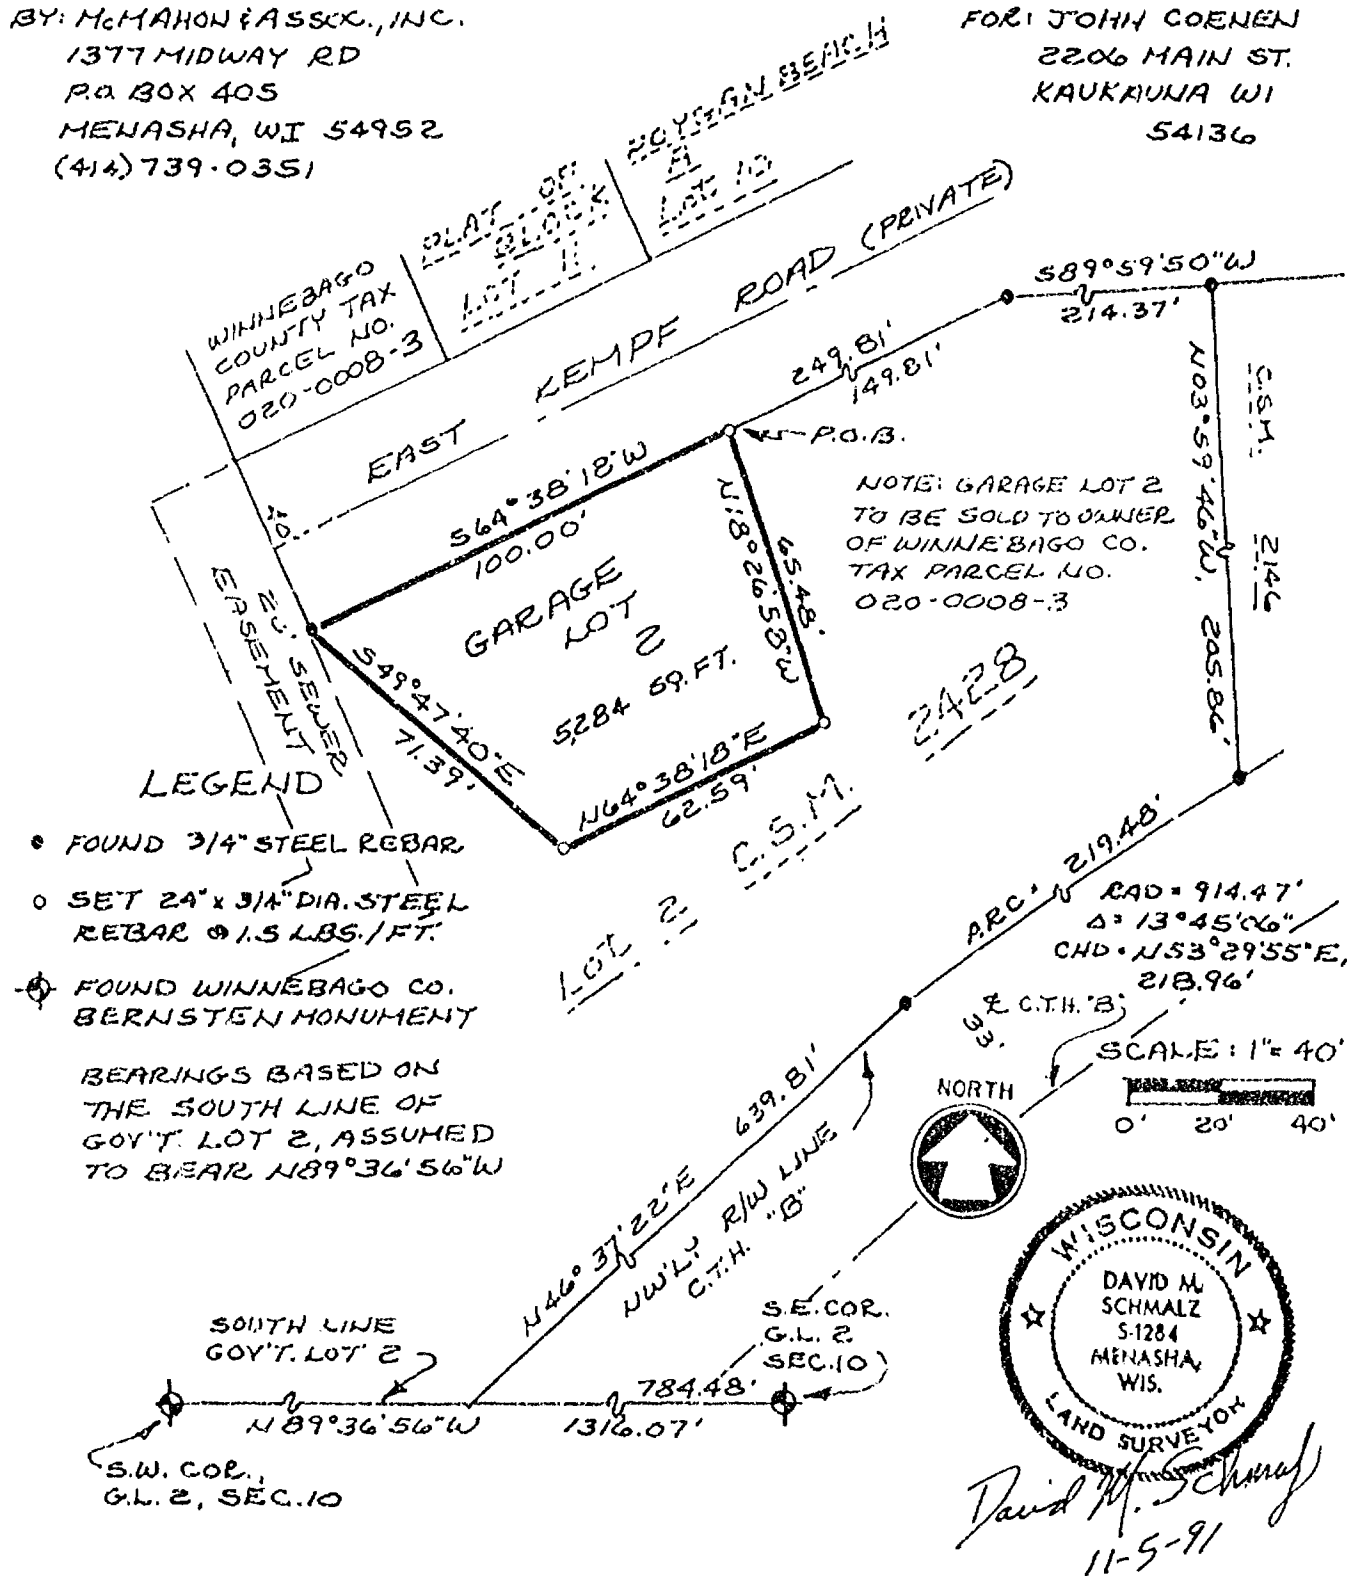 BY: McMAHON & ASSOC., INC.
1377 MIDWAY RD
P.O. BOX 405
MENASHA, WI 54952
(414) 739-0351
FOR: JOHN COENEN
2206 MAIN ST.
KAUKAUNA WI
54136
PLAT OF
BLOCK
LOT 11
POYGAN BEACH
A
LOT 10
WINNEBAGO
COUNTY TAX
PARCEL NO.
020-0008-3
EAST KEMPF ROAD (PRIVATE)
S89°59'50"W
214.37'
249.81'
149.81'
P.O.B.
N03°59'46"W, 205.86'
C.S.M. 2146
NOTE: GARAGE LOT 2
TO BE SOLD TO OWNER
OF WINNEBAGO CO.
TAX PARCEL NO.
020-0008-3
S64°38'18"W
100.00'
N18°26'58"W
65.48'
GARAGE
LOT
2
5,284 SQ. FT.
S49°47'40"E
71.39'
N64°38'18"E
62.59'
20' SEWER
EASEMENT
LOT 2 C.S.M. 2428
LEGEND
FOUND 3/4" STEEL REBAR
SET 24" x 3/4" DIA. STEEL
REBAR @ 1.5 LBS./FT.
FOUND WINNEBAGO CO.
BERNSTEN MONUMENT
BEARINGS BASED ON
THE SOUTH LINE OF
GOV'T. LOT 2, ASSUMED
TO BEAR N89°36'56"W
ARC = 219.48'
RAD = 914.47'
Δ = 13°45'06"
CHD = N53°29'55"E,
218.96'
℄ C.T.H. "B"
33'
SCALE: 1" = 40'
0' 20' 40'
NORTH
639.81'
N46°37'22"E
NW'LY R/W LINE
C.T.H. "B"
SOUTH LINE
GOV'T. LOT 2
S.E. COR.
G.L. 2
SEC. 10
784.48'
N89°36'56"W 1316.07'
S.W. COR.,
G.L. 2, SEC. 10
WISCONSIN
DAVID M.
SCHMALZ
S-1284
MENASHA,
WIS.
LAND SURVEYOR
David M. Schmalz
11-5-91